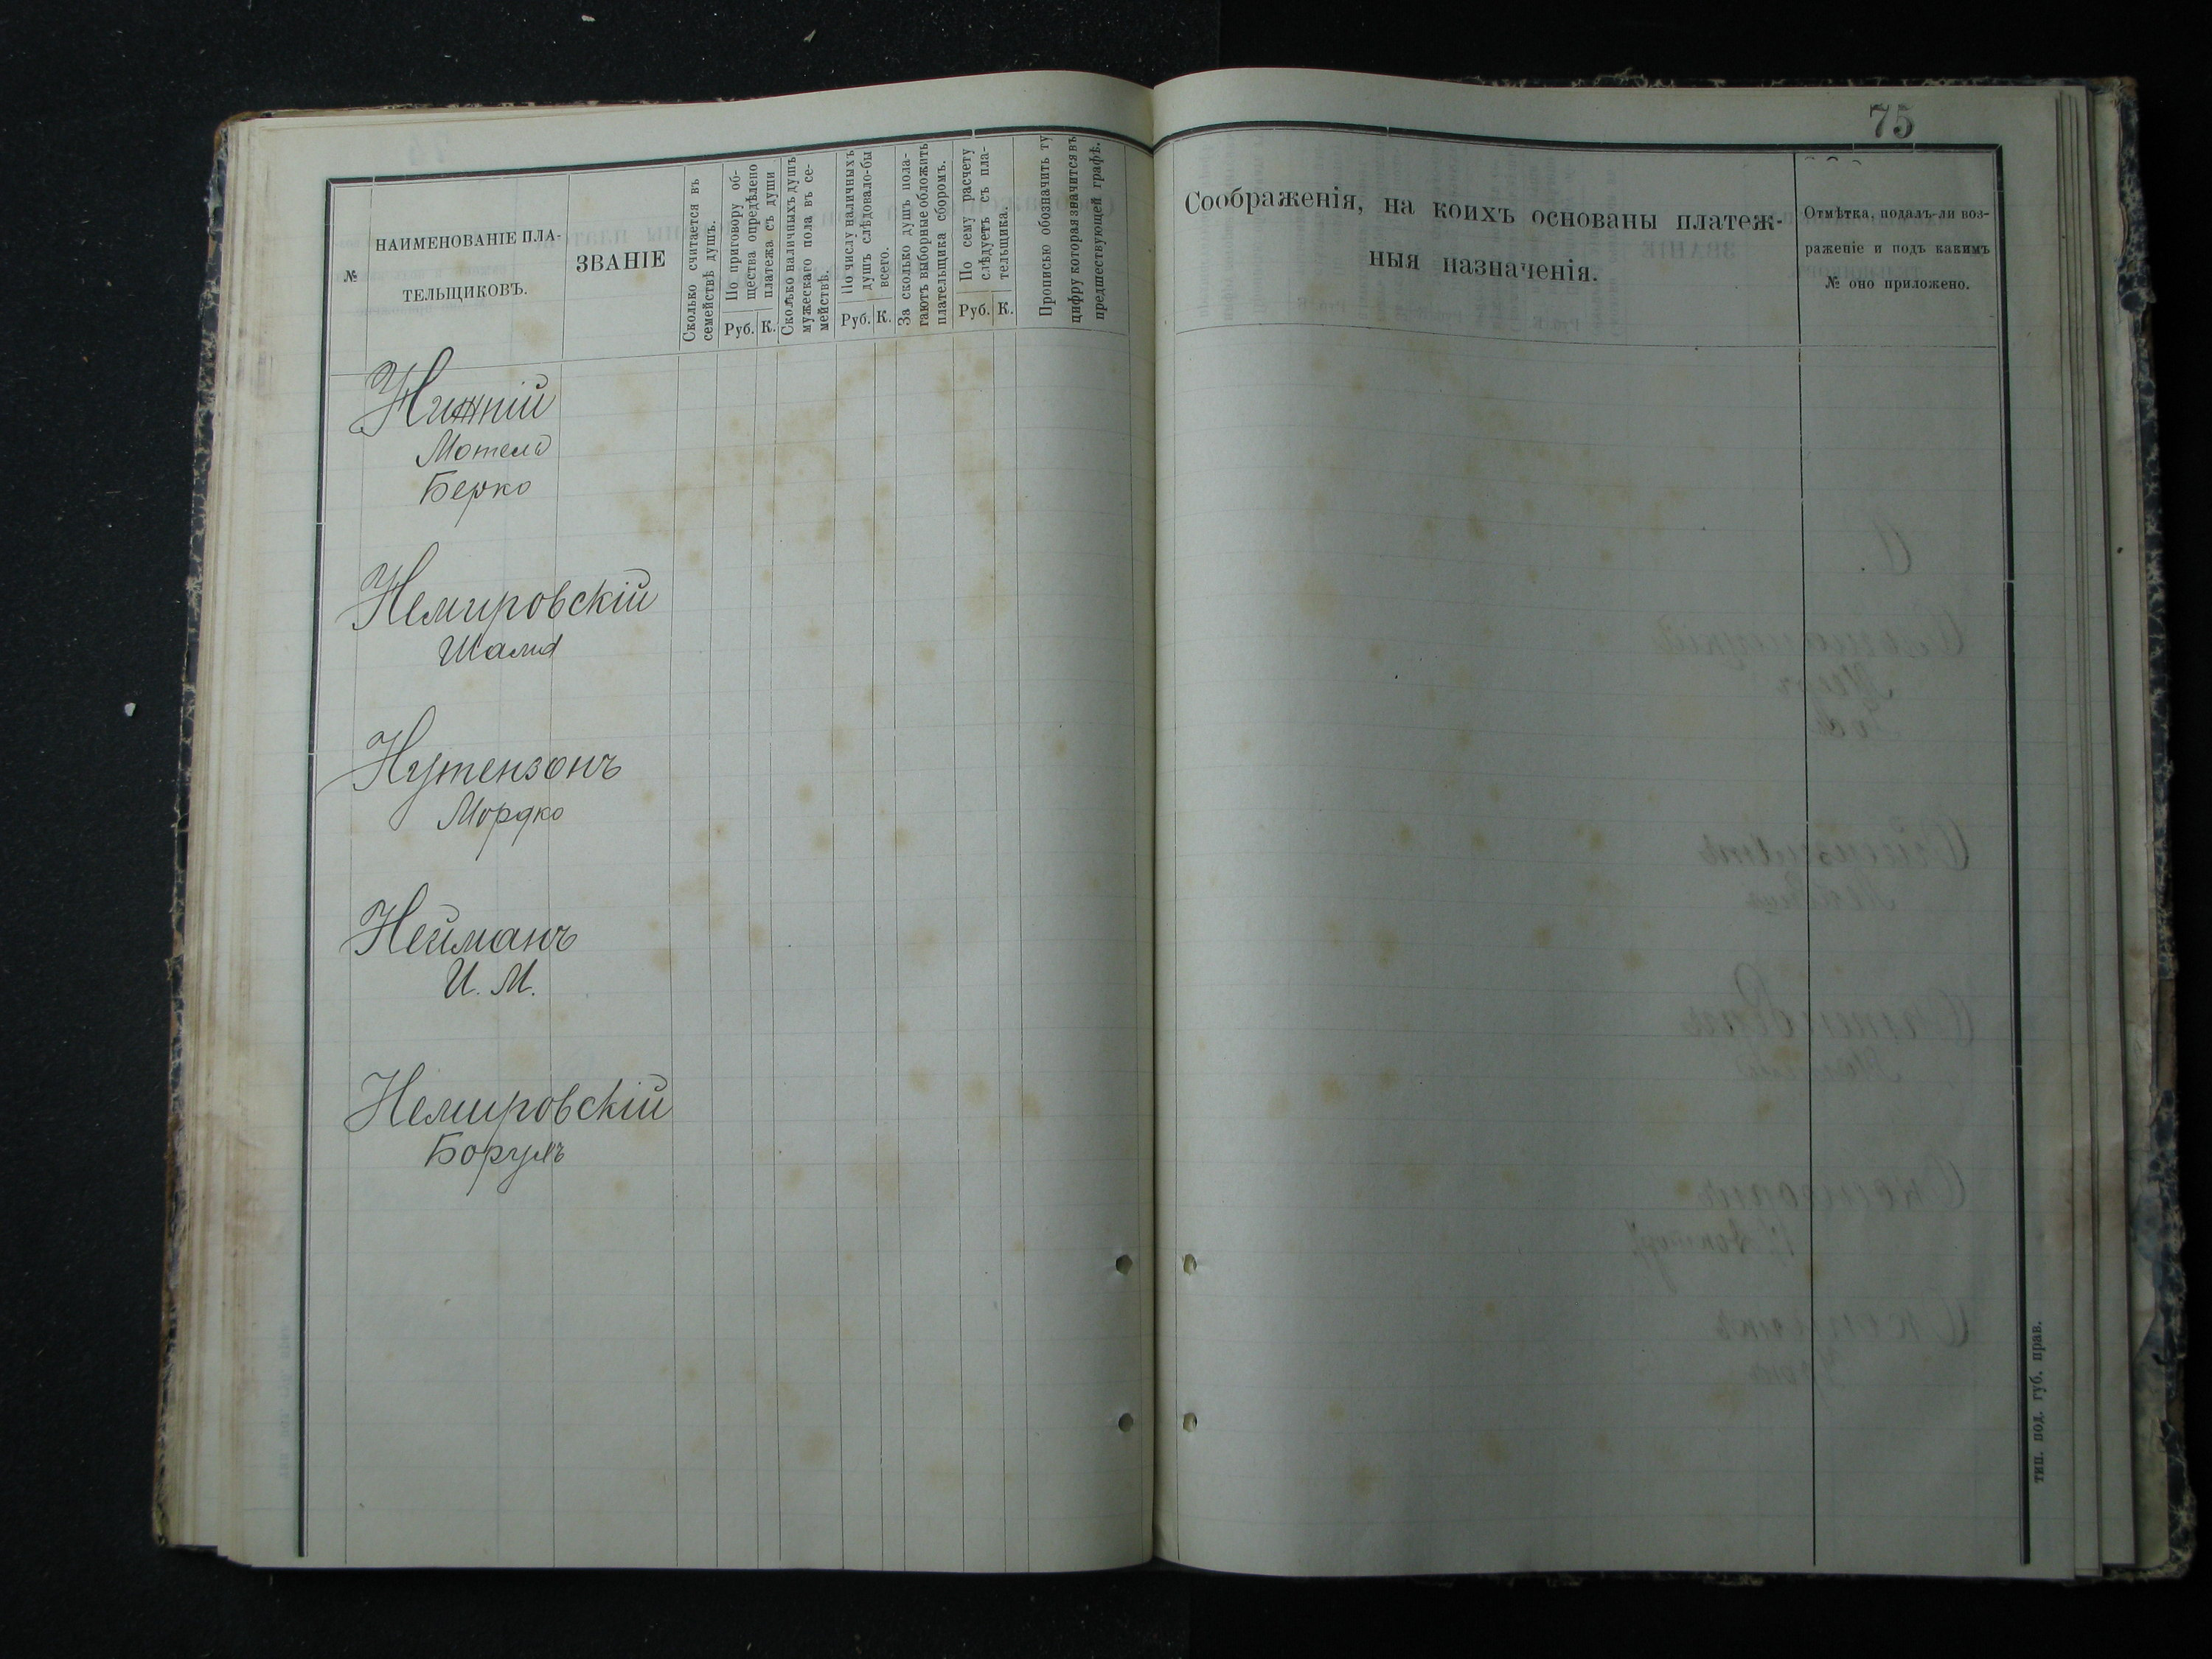 75
№
НАИМЕНОВАНІЕ ПЛА-
ТЕЛЬЩИКОВЪ.
ЗВАНІЕ
Сколько считается въ
семействѣ душъ.
По приговору об-
щества опредѣлено
платежа съ души
Руб. К.
Сколько наличныхъ душъ
мужескаго пола въ се-
мействѣ.
По числу наличныхъ
душъ слѣдовало-бы
всего.
Руб. К.
За сколько душъ пола-
гаютъ выборные обложить
плательщика сборомъ.
По сему расчету
слѣдуетъ съ пла-
тельщика.
Руб. К.
Прописью обозначить ту
цифру которая значится въ
предшествующей графѣ.
Соображенія, на коихъ основаны платеж-
ныя назначенія.
Отмѣтка, подалъ-ли воз-
раженіе и подъ какимъ
№ оно приложено.
Нижній
Мотель
Берко
Немировскій
Шалид
Нутензонъ
Мордко
Нейманъ
И. М.
Немировскій
Борухъ
тип. под. губ. прав.